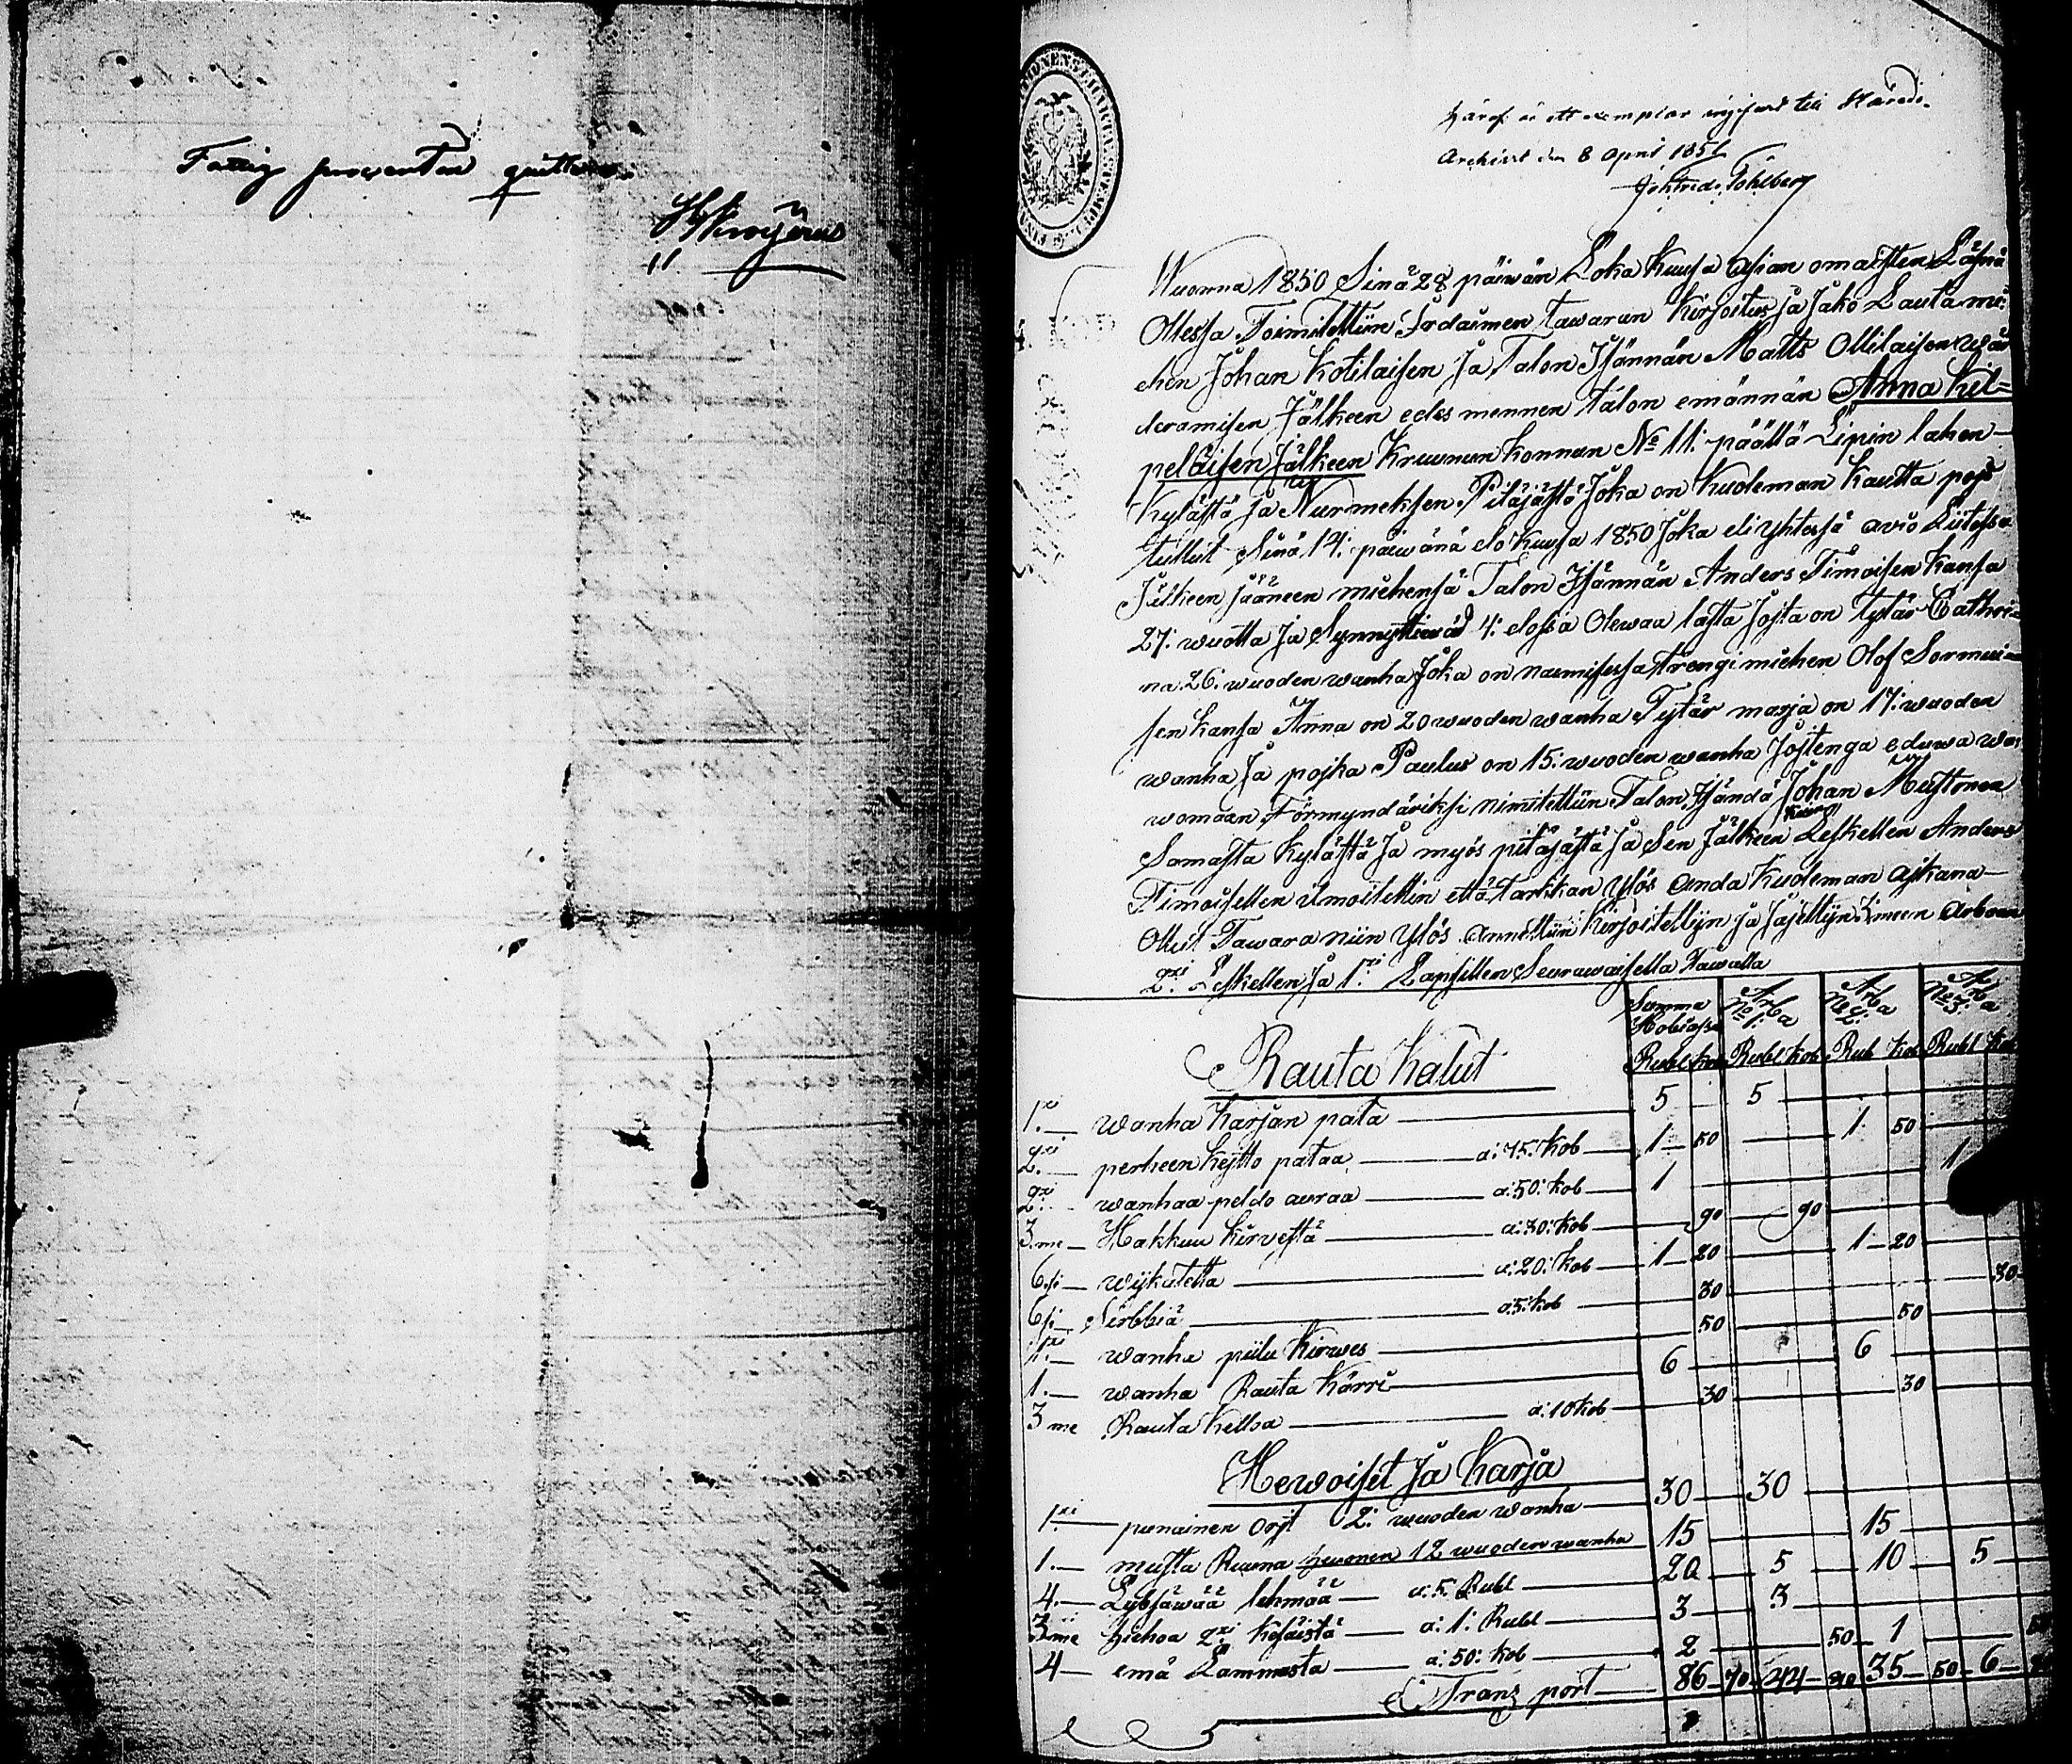 Fattig procenten quitteras.
Häraf är ett exemplar ingifvet till Härads-
Archivet den 8 April 1851
Wuonna 1850 Sinä 28 päiwän Loka Kuusa asian omaisten Läsnä
Ollessa Toimitettiin Irdaimen tawaran Kirjoitus ja Jako Lautamie-
chen Johan Kotilaisen Ja Talon Isännän Matts Ollilaisen wär
deramisen Jälkeen edes mennen talon emännän Anna Kel=
peläisen Jälkeen Kruunun konnun No 11: päältä Lipin lahen
Kylästä ja Nurmeksen Pitäjästä Joka on Kuoleman Kautta pojs
tullut Sinä 14: päiwänä elo Kuusa 1850 Joka eli yhtesä avio Liitosa
Jälkeen jääneen miehensä Talon Isännän Anders Timoisen Kansa
27: wuotta Ja Synnyttiwäd 4: elossa Olewaa lasta Josta on tytär Cathri=
na 26. wuoden wanha Joka on naimisessa trengi miehen Olof Sormui-
sen kansa Anna on 20 wuoden wanha Tytär marja on 17: wuoden
wanha Ja pojka Paulus on 15: wuoden wanha Jostenga eduwa wa
womaan Förmyndäriksi nimitettiin Talon Isändä Johan Mustonen
Samasta Kylästä Ja myös pitäjästä Ja Sen Jälkeen Leskellen Anders
Timoisellen ilmoitettin että tarkkan Ylös anda Kuoleman ajkana
Ollut Tawara niin Ylös Annettiin Kirjoitettijn ja Jajettijn Zmeen Arboon
2:xi Leskellen Ja 1:xi Lapsillen Seurawaisella Tawalla
Summa Hobiassa Arba No 1: Arba No 2: Arba No 3:
Rubl Kob Rubl Kob Rub Kob Rubl Kob
Rauta Kalut
1:xi wanha Karjan pata 5 5
2:xi perheen Kejtto pataa a: 75: Kob 1 50 1 50
2:xi wanhaa peldo auraa a: 50: Kob 1 1
3.me Hakkuu Kirvestä a: 30: Kob 90 90
6.si wijkatetta a: 20: Kob 1 20 1 20
6.si Sirbbiä a: 5: Kob 30 30
1:xi wanha piilu Kirwes 50 50
1. wanha Rauta Kärri 6 6
3 me Rauta Kelloa a: 10 Kob 30 30
Hewoiset Ja Karja
1:xi punainen orjt 2: wuoden wanha 30 30
1. musta Ruuna hewonen 12 wuoden wanha 15 15
4. Lybsäwää lehmää a: 5: Rubl 20 5 10 5
3.me hiehoa 2:xi Kesäistä a: 1: Rubl 3 3
4 emä Lammasta a: 50: Kob 2 50 1 50
Transport 86 70 44 40 35 50 6